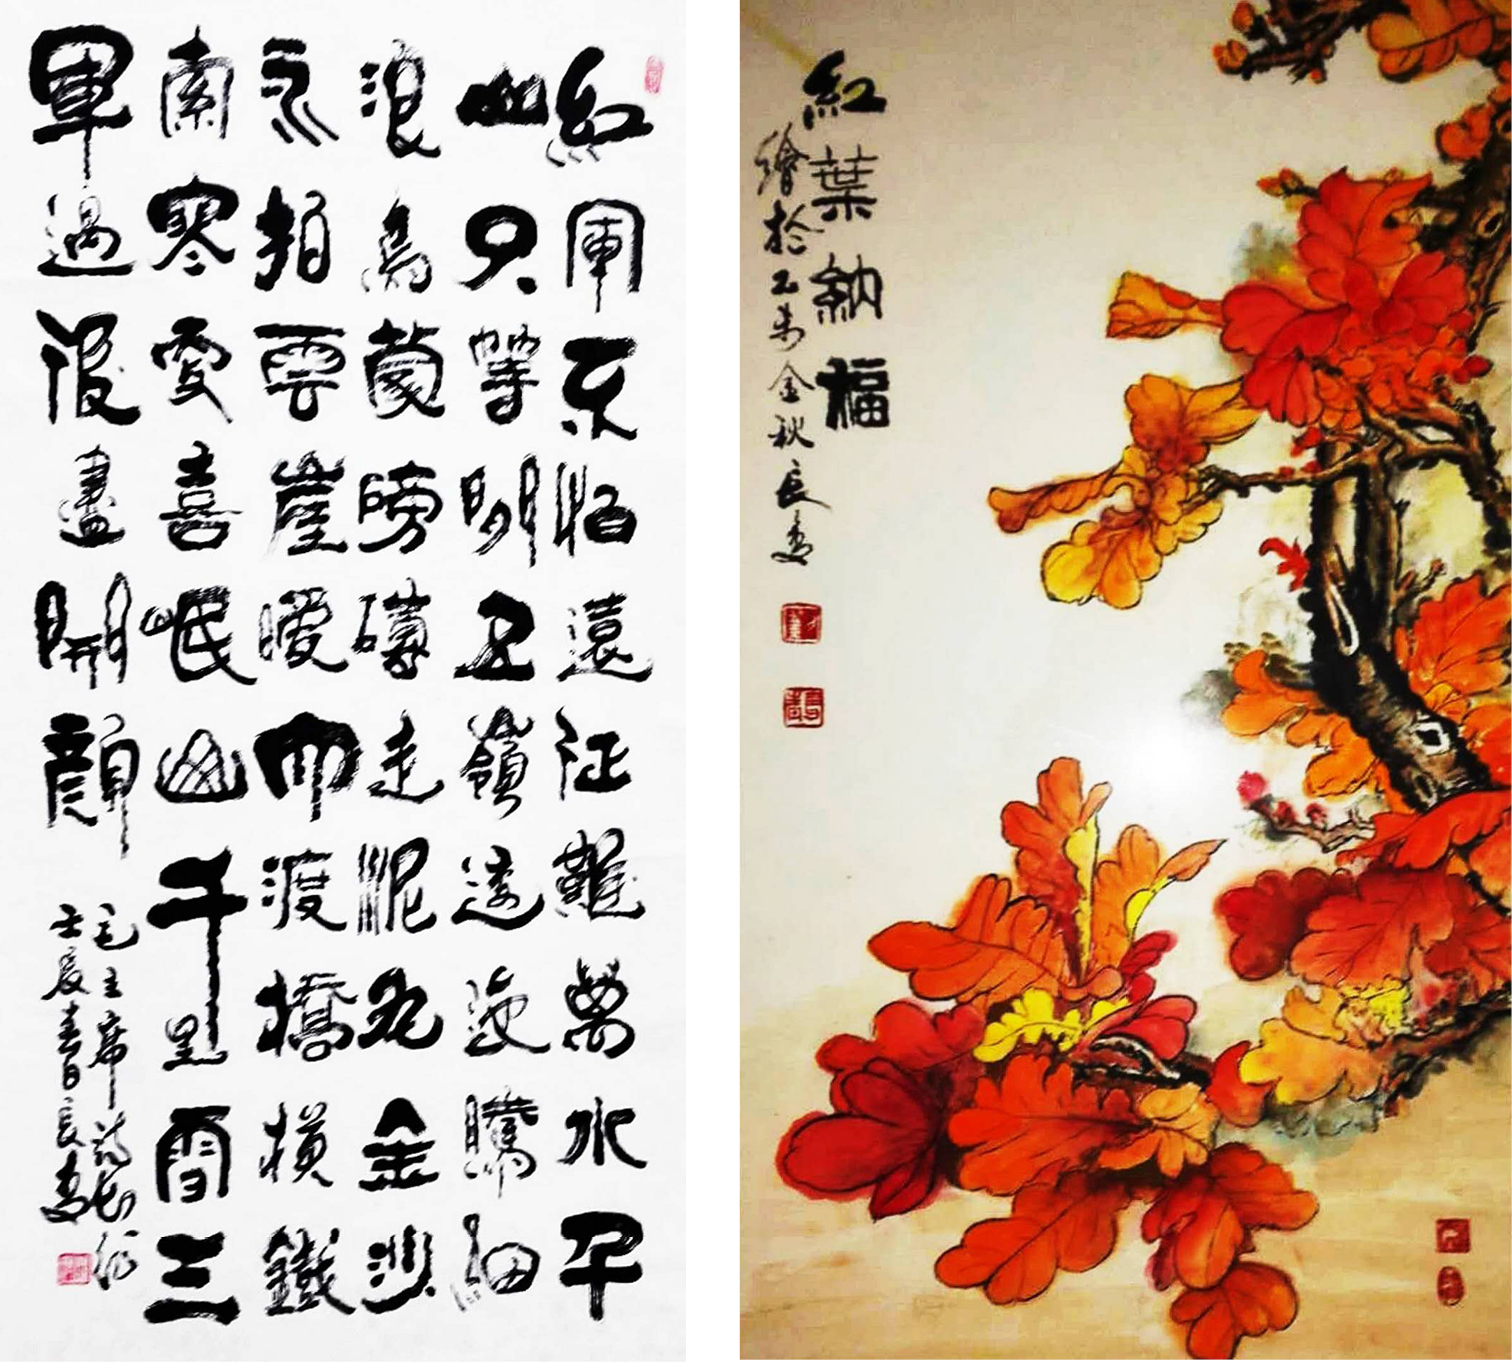 紅軍不怕遠征難萬水千
山只等閑五嶺逶迤騰細
浪烏蒙磅礴走泥丸金沙
水拍雲崖暖大渡橋橫鐵
索寒更喜岷山千里雪三
軍過後盡開顏
毛主席詩長征
壬辰春日長
紅葉納福
繪於乙未金秋長